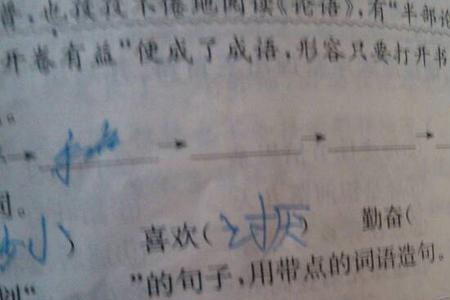 也孜孜不倦地阅读《论语》,有“半部论
开卷有益”便成了成语,形容只要打开书
。
→ → → →
词。
) 喜欢(讨厌) 勤奋(
”的句子,用带点的词语造句。